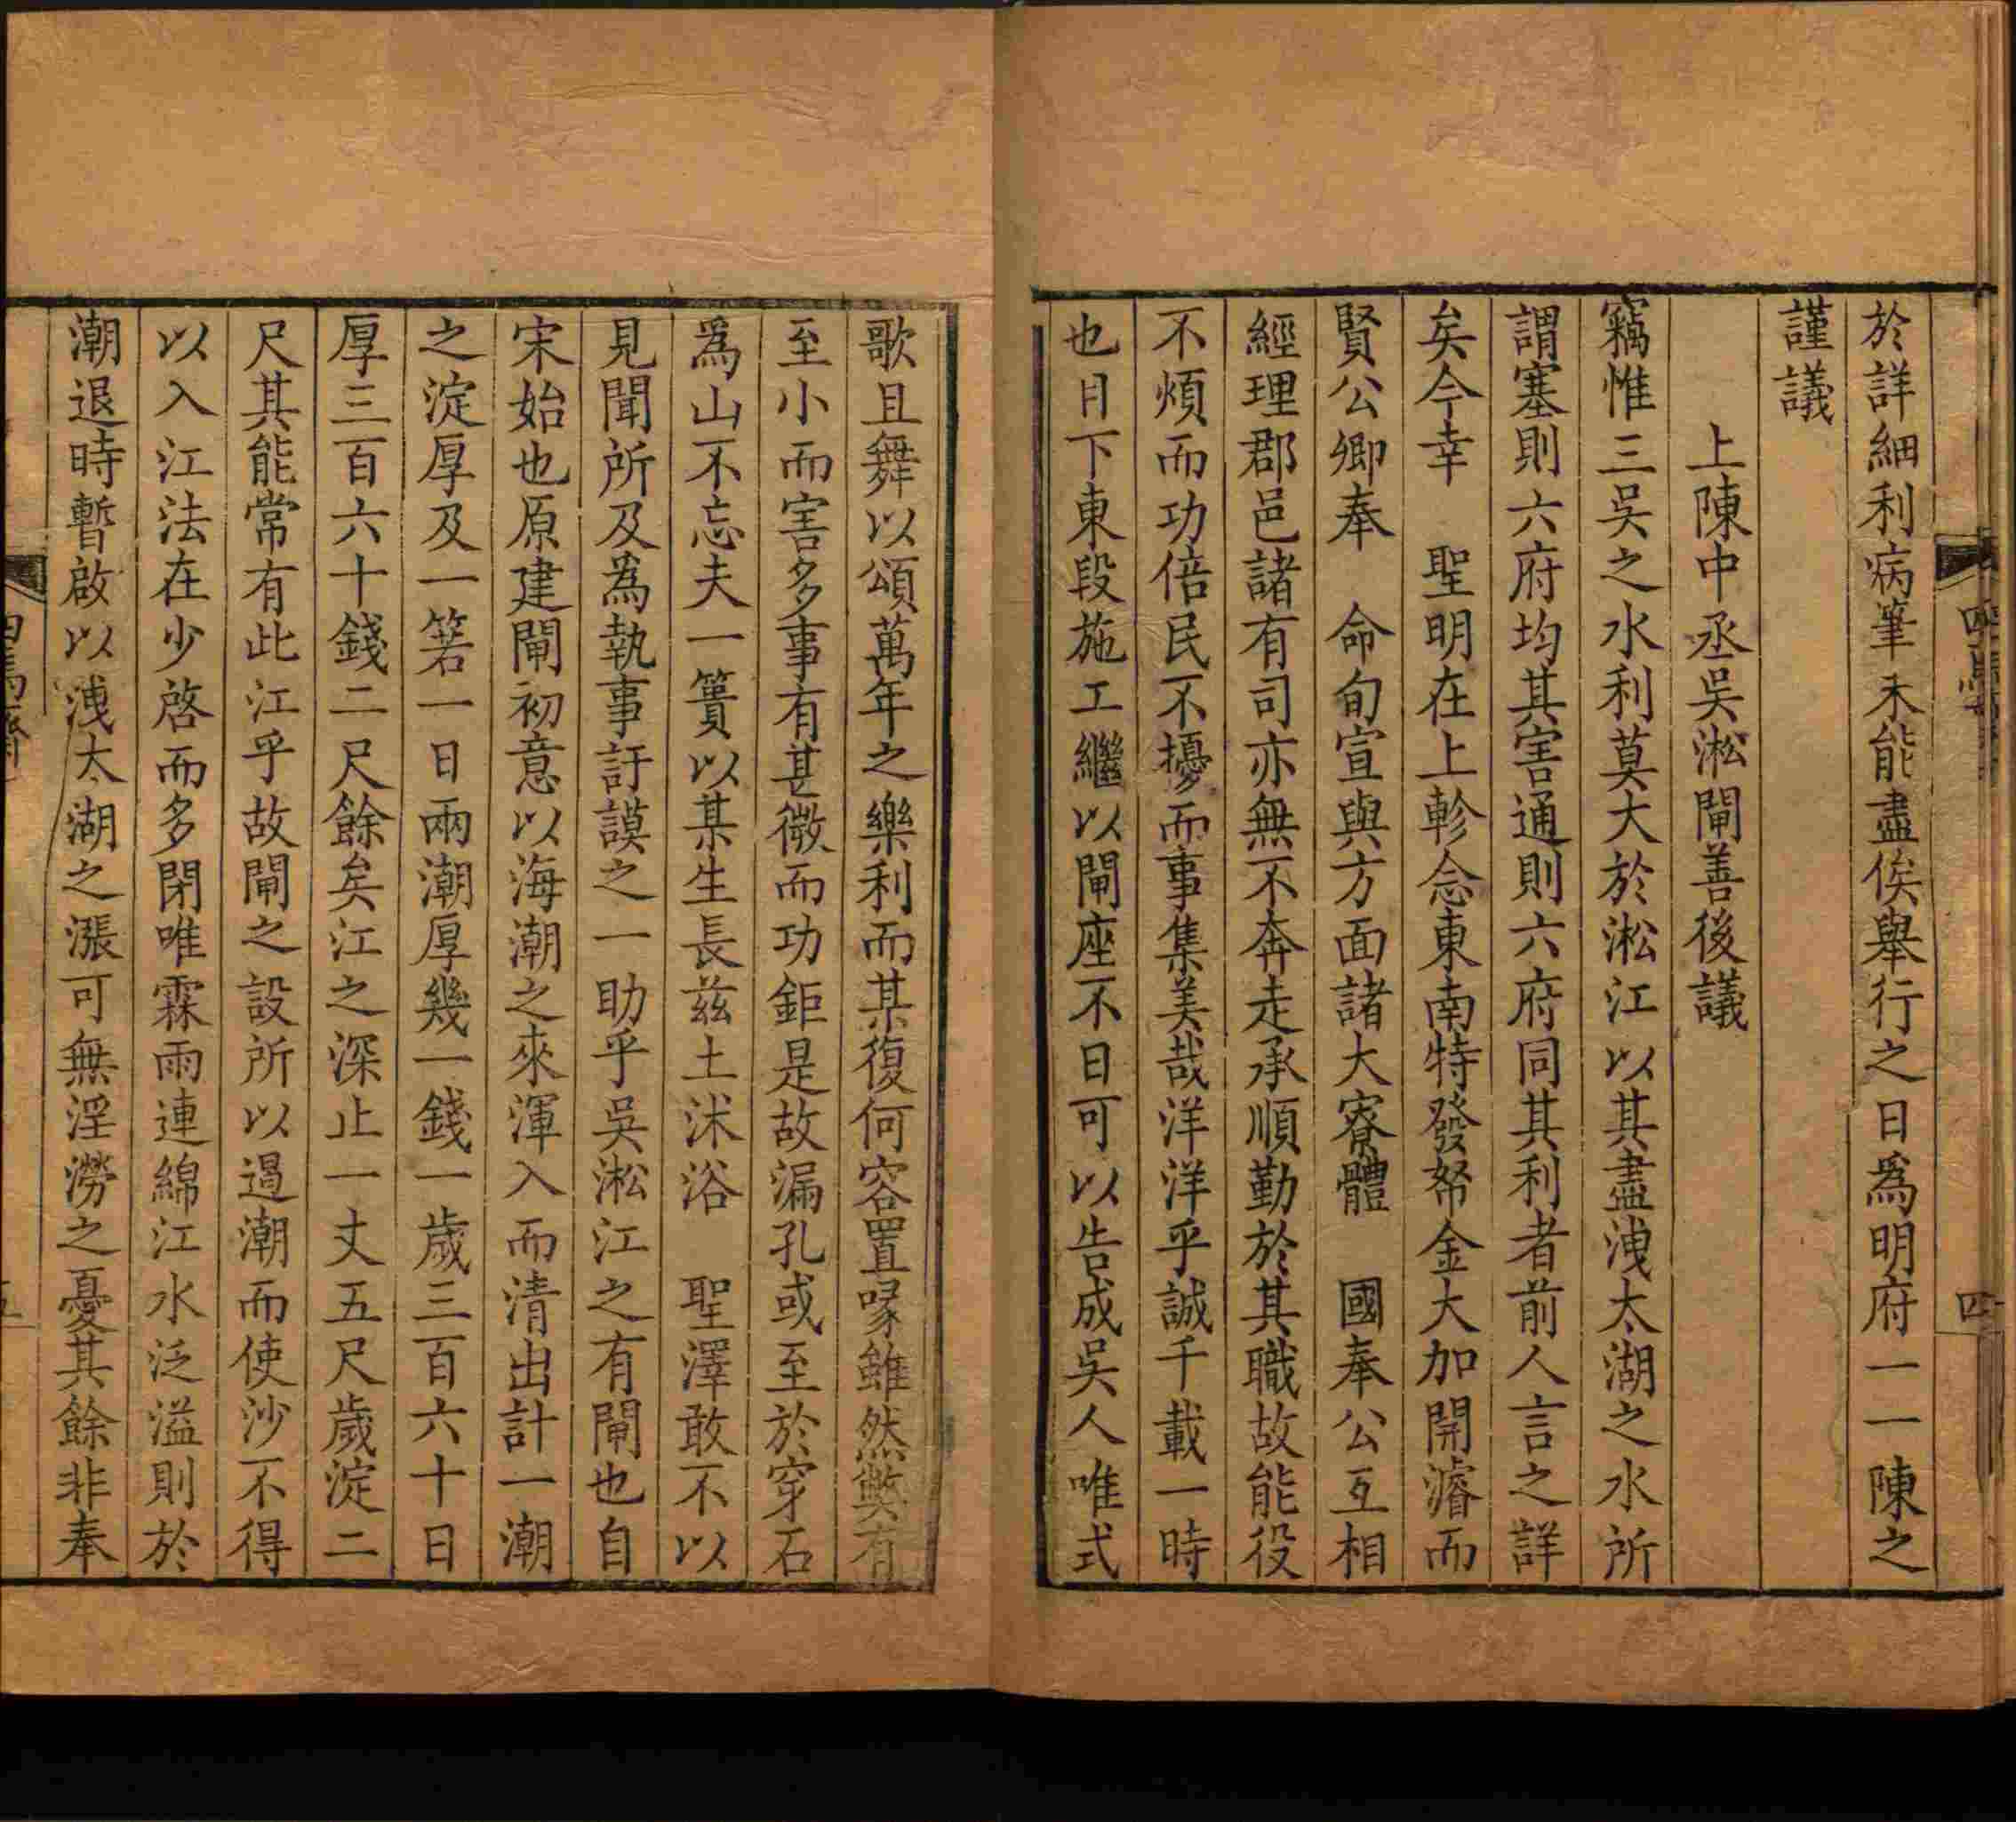 於詳細利病筆未能盡俟舉行之日爲明府一一陳之
謹議
上陳中丞吳淞閘善後議
竊惟三吳之水利莫大於淞江以其盡洩太湖之水所
謂塞則六府均其害通則六府同其利者前人言之詳
矣今幸 聖明在上軫念東南特發帑金大加開濬而
賢公卿奉 命旬宣與方面諸大寮體 國奉公互相
經理郡邑諸有司亦無不奔走承順勤於其職故能役
不煩而功倍民不擾而事集美哉洋洋乎誠千載一時
也目下東段施工繼以閘座不日可以告成吳人唯式
歌且舞以頌萬年之樂利而某復何容置喙雖然獘有
至小而害多事有甚微而功鉅是故漏孔或至於穿石
爲山不忘夫一簣以某生長兹土沐浴 聖澤敢不以
見聞所及爲執事訏謨之一助乎吳淞江之有閘也自
宋始也原建閘初意以海潮之來渾入而清出計一潮
之淀厚及一箬一日兩潮厚幾一錢一歲三百六十日
厚三百六十錢二尺餘矣江之深止一丈五尺歲淀二
尺其能常有此江乎故閘之設所以遏潮而使沙不得
以入江法在少啓而多閉唯霖雨連綿江水泛溢則於
潮退時暫啟以洩太湖之漲可無淫澇之憂其餘非奉
四
五